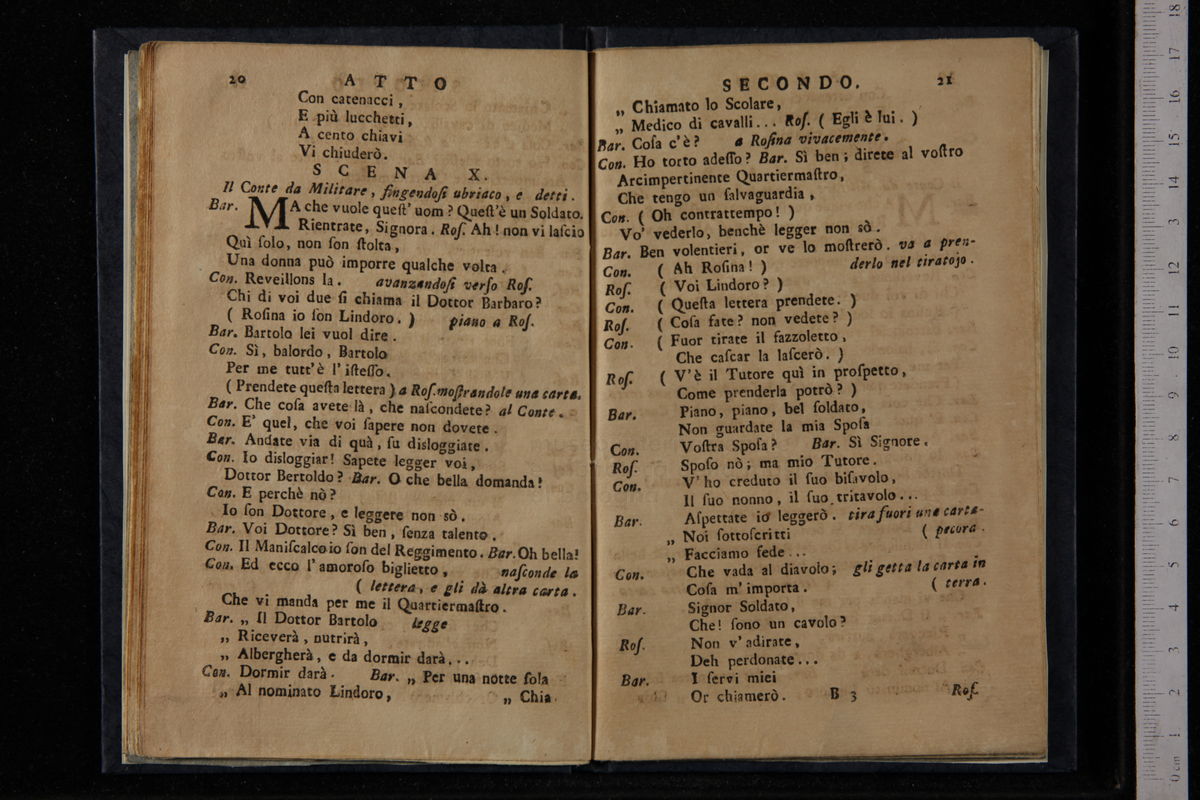 20 ATTO
Con catenacci,
E più lucchetti,
A cento chiavi
Vi chiuderò.
SCENA X.
Il Conte da Militare, fingendoſi ubriaco, e detti.
Bar. MA che vuole queſt' uom? Queſt'è un Soldato.
Rientrate, Signora. Roſ. Ah! non vi laſcio
Quì ſolo, non ſon ſtolta,
Una donna può imporre qualche volta.
Con. Reveillons la. avanzandoſi verſo Roſ.
Chi di voi due ſi chiama il Dottor Barbaro?
( Roſina io ſon Lindoro. ) piano a Roſ.
Bar. Bartolo lei vuol dire.
Con. Sì, balordo, Bartolo
Per me tutt'è l'iſteſſo.
( Prendete queſta lettera ) a Roſ. moſtrandole una carta.
Bar. Che coſa avete là, che naſcondete? al Conte.
Con. E' quel, che voi ſapere non dovete.
Bar. Andate via di quà, ſu disloggiate.
Con. Io disloggiar! Sapete legger voi,
Dottor Bertoldo? Bar. O che bella domanda!
Con. E perchè nò?
Io ſon Dottore, e leggere non sò.
Bar. Voi Dottore? Sì ben, ſenza talento.
Con. Il Maniſcalco io ſon del Reggimento. Bar. Oh bella!
Con. Ed ecco l'amoroſo biglietto, naſconde la
( lettera, e gli dà altra carta.
Che vi manda per me il Quartiermaſtro.
Bar. „ Il Dottor Bartolo legge
„ Riceverà, nutrirà,
„ Albergherà, e da dormir darà...
Con. Dormir darà. Bar. „ Per una notte ſola
„ Al nominato Lindoro,
„ Chia-
SECONDO. 21
„ Chiamato lo Scolare,
„ Medico di cavalli... Roſ. ( Egli è lui. )
Bar. Coſa c'è? a Roſina vivacemente.
Con. Ho torto adeſſo? Bar. Sì ben; direte al voſtro
Arcimpertinente Quartiermaſtro,
Che tengo un ſalvaguardia,
Con. ( Oh contrattempo! )
Vo' vederlo, benchè legger non sò.
Bar. Ben volentieri, or ve lo moſtrerò. va a pren-
derlo nel tiratojo.
Con. ( Ah Roſina! )
Roſ. ( Voi Lindoro? )
Con. ( Queſta lettera prendete. )
Roſ. ( Coſa fate? non vedete? )
Con. ( Fuor tirate il fazzoletto,
Che caſcar la laſcerò. )
Roſ. ( V'è il Tutore quì in proſpetto,
Come prenderla potrò? )
Bar. Piano, piano, bel ſoldato,
Non guardate la mia Spoſa
Con. Voſtra Spoſa? Bar. Sì Signore.
Roſ. Spoſo nò; ma mio Tutore.
Con. V'ho creduto il ſuo biſavolo,
Il ſuo nonno, il ſuo tritavolo...
Bar. Aſpettate io leggerò. tira fuori una carta-
„ Noi ſottoſcritti ( pecora.
„ Facciamo fede...
Con. Che vada al diavolo; gli getta la carta in
Coſa m'importa. ( terra.
Bar. Signor Soldato,
Che! ſono un cavolo?
Roſ. Non v'adirate,
Deh perdonate...
Bar. I ſervi miei
Or chiamerò. B 3 Roſ.